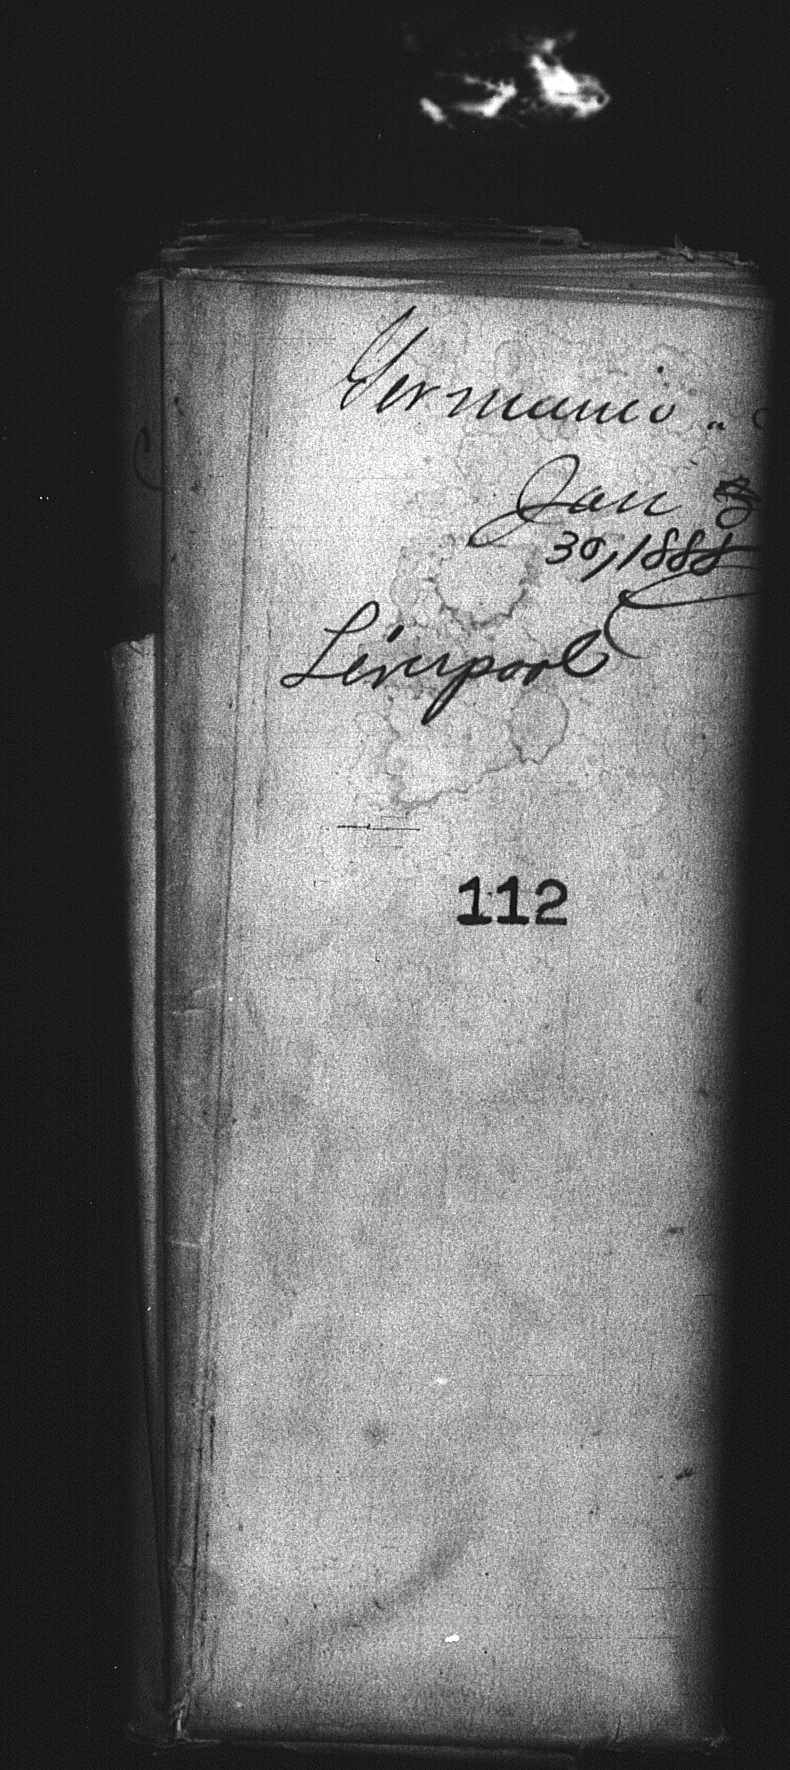 Germanic "
Jan
30, 1888
Liverpool
112